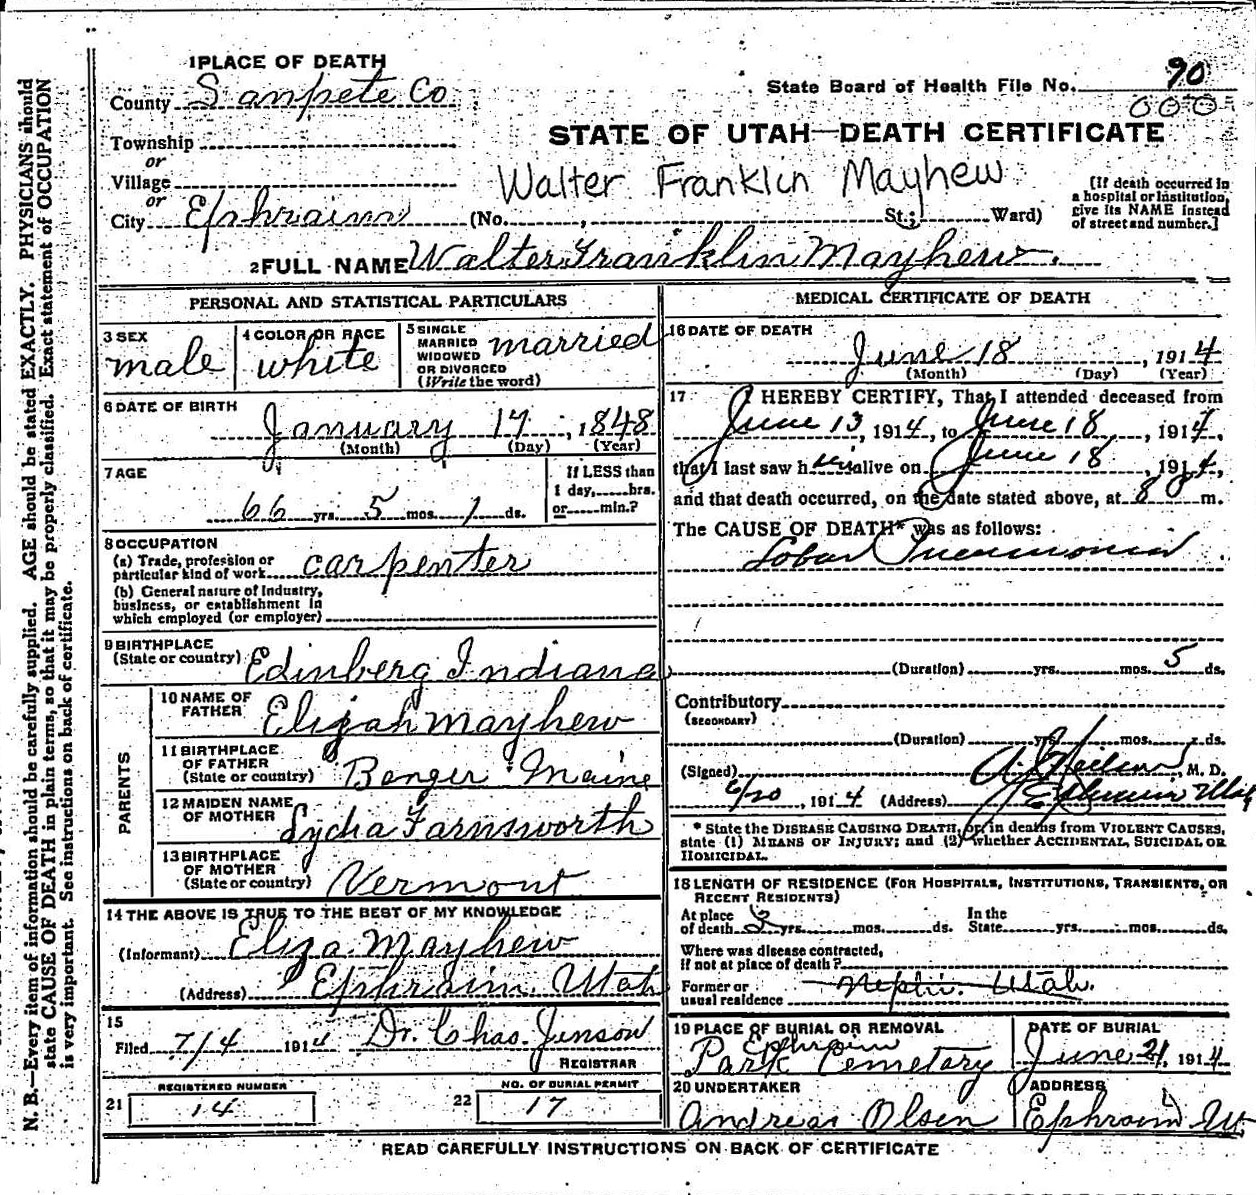 N. B.—Every item of information should be carefully supplied. AGE should be stated EXACTLY. PHYSICIANS should
state CAUSE OF DEATH in plain terms, so that it may be properly classified. Exact statement of OCCUPATION
is very important. See instructions on back of certificate.
1 PLACE OF DEATH
County Sanpete Co
State Board of Health File No. 90
000
Township
or
Village
or
City Ephraim
STATE OF UTAH—DEATH CERTIFICATE
Walter Franklin Mayhew
(No. , St.; Ward)
[If death occurred in
a hospital or institution,
give its NAME instead
of street and number.]
2 FULL NAME Walter Franklin Mayhew.
PERSONAL AND STATISTICAL PARTICULARS
3 SEX
male
4 COLOR OR RACE
white
5 SINGLE
MARRIED
WIDOWED
OR DIVORCED
(Write the word)
married
6 DATE OF BIRTH
January 17, 1848
(Month) (Day) (Year)
7 AGE
66 yrs. 5 mos. 1 ds.
If LESS than
1 day, hrs.
or min.?
8 OCCUPATION
(a) Trade, profession or
particular kind of work carpenter
(b) General nature of Industry,
business, or establishment in
which employed (or employer)
9 BIRTHPLACE
(State or country) Edinberg Indiana
PARENTS
10 NAME OF
FATHER Elijah Mayhew
11 BIRTHPLACE
OF FATHER
(State or country) Benger Maine
12 MAIDEN NAME
OF MOTHER Lydia Farnsworth
13 BIRTHPLACE
OF MOTHER
(State or country) Vermont
14 THE ABOVE IS TRUE TO THE BEST OF MY KNOWLEDGE
(Informant) Eliza Mayhew
(Address) Ephraim, Utah
15
Filed 7/4 1914 Dr. Chas. Jenson
REGISTRAR
REGISTERED NUMBER
21 14
NO. OF BURIAL PERMIT
22 17
MEDICAL CERTIFICATE OF DEATH
16 DATE OF DEATH
June 18, 1914
(Month) (Day) (Year)
17 I HEREBY CERTIFY, That I attended deceased from
June 13, 1914, to June 18, 1914,
that I last saw him alive on June 18, 1914,
and that death occurred, on the date stated above, at 8 m.
The CAUSE OF DEATH* was as follows:
Lobar Pneumonia.
(Duration) yrs. mos. 5 ds.
Contributory
(SECONDARY)
(Duration) yrs. mos. ds.
(Signed) M. D.
6/20, 1914 (Address) Ephraim Utah
* State the DISEASE CAUSING DEATH, or, in deaths from VIOLENT CAUSES,
state (1) MEANS OF INJURY; and (2) whether ACCIDENTAL, SUICIDAL OR
HOMICIDAL.
18 LENGTH OF RESIDENCE (FOR HOSPITALS, INSTITUTIONS, TRANSIENTS, OR
RECENT RESIDENTS)
At place
of death yrs. mos. ds.
In the
State yrs. mos. ds.
Where was disease contracted,
if not at place of death?
Former or
usual residence Nephi. Utah.
19 PLACE OF BURIAL OR REMOVAL
Ephraim
Park Cemetary
DATE OF BURIAL
June 21, 1914
20 UNDERTAKER
Andreas Olsen
ADDRESS
Ephraim Ut.
READ CAREFULLY INSTRUCTIONS ON BACK OF CERTIFICATE